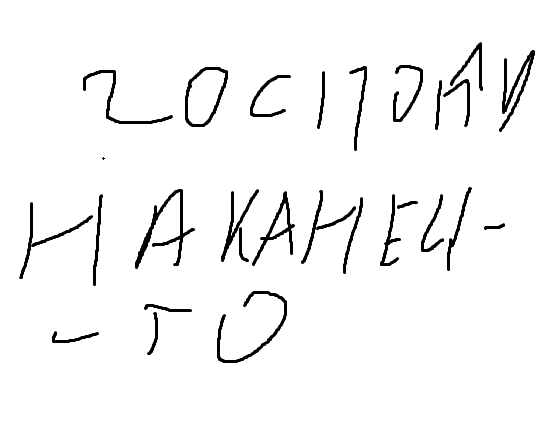 ГОСПОДИ
НАКАНЕЦ-
-ТО